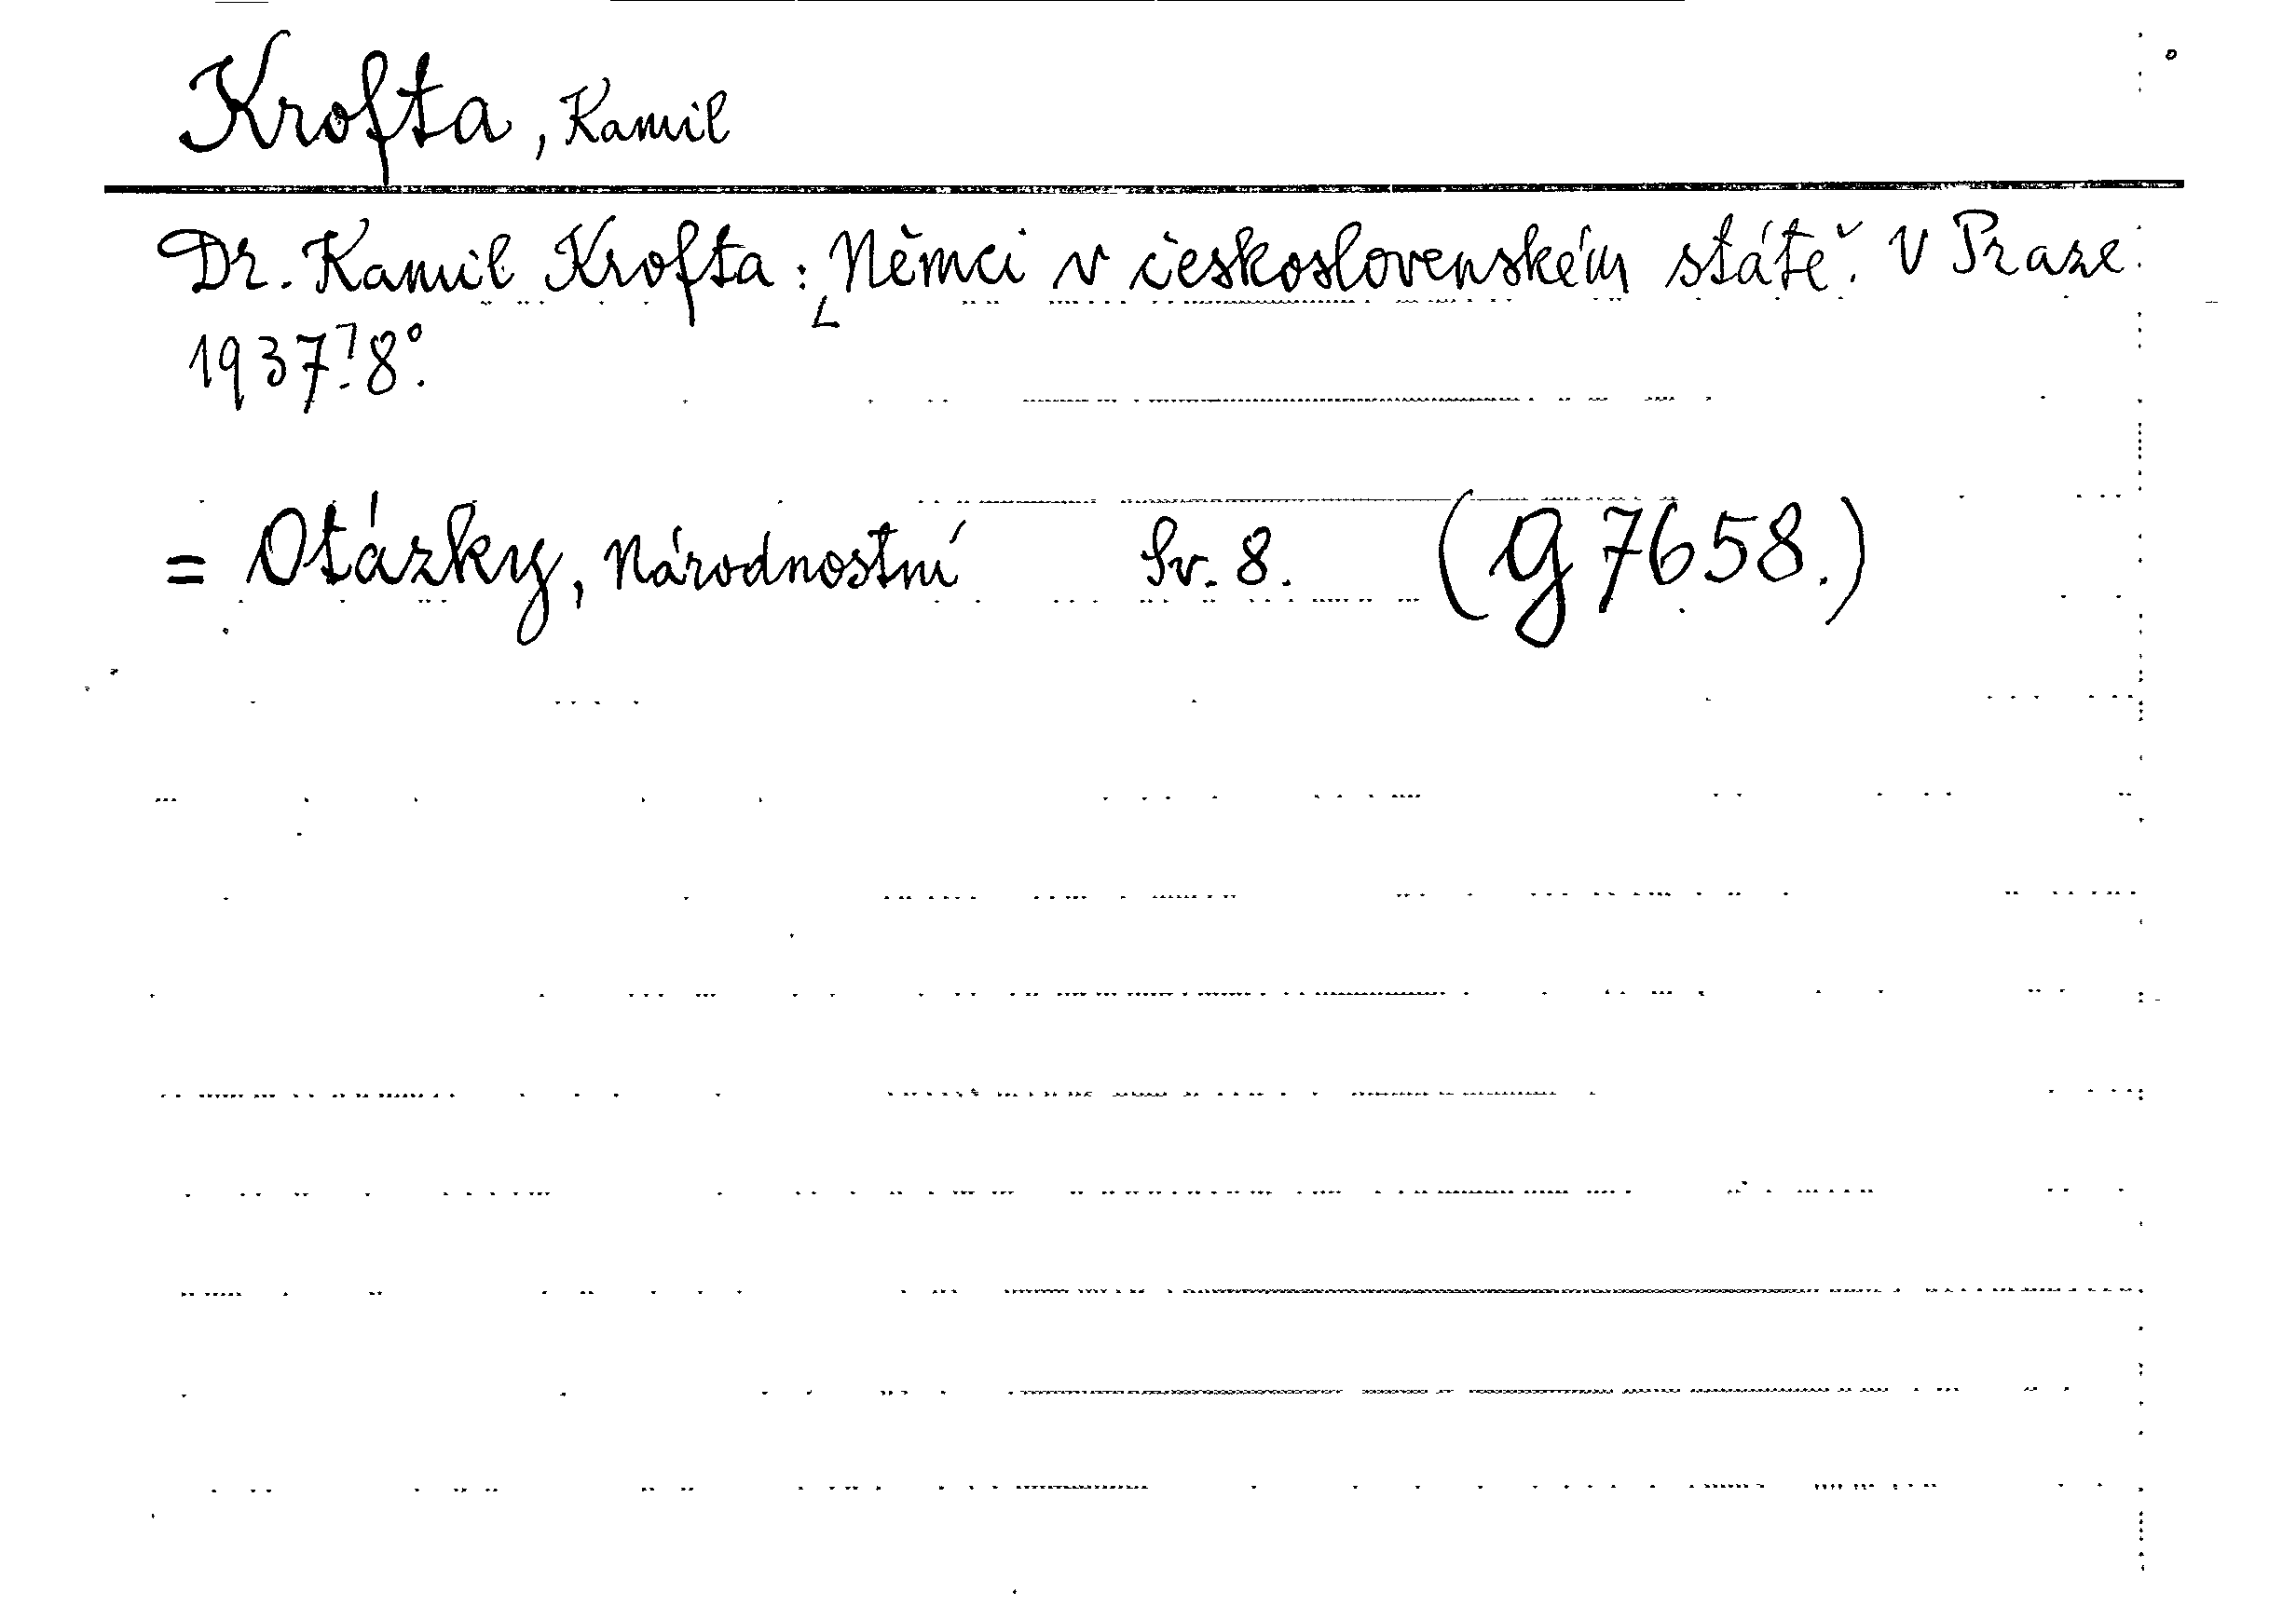 Krofta, Kamil
Dr. Kamil Krofta: ⌊Němci v československém státě. V Praze
1937.⌉ 8°.
= Otázky, Národnostní Sv. 8. (g 7658.)